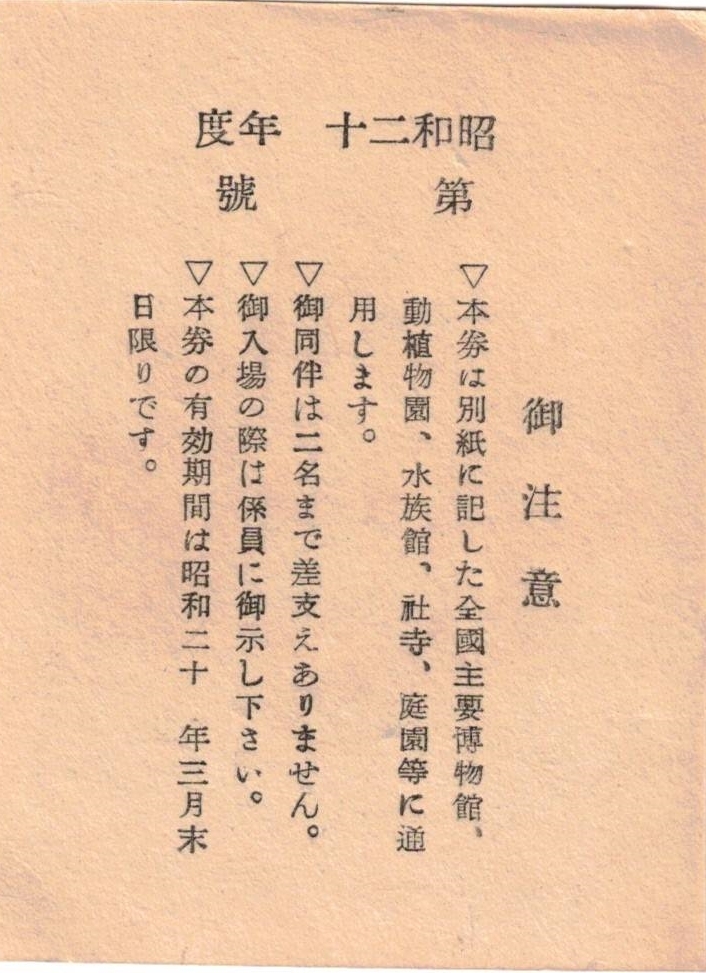 昭和二十　年度
第　　　號
御注意
▽本券は別紙に記した全國主要博物館、
動植物園、水族館、社寺、庭園等に通
用します。
▽御同伴は二名まで差支えありません。
▽御入場の際は係員に御示し下さい。
▽本券の有効期間は昭和二十　年三月末
日限りです。